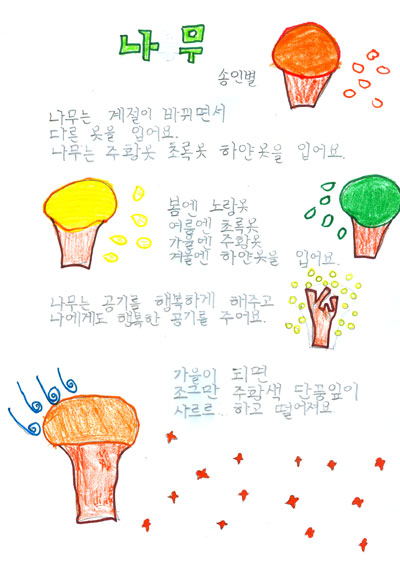 나무
송인별
나무는 계절이 바뀌면서
다른 옷을 입어요.
나무는 주황옷 초록옷 하얀옷을 입어요.
봄엔 노랑옷
여름엔 초록옷
가을엔 주황옷
겨울엔 하얀옷을 입어요.
나무는 공기를 행복하게 해주고
나에게도 행복한 공기를 주어요.
가을이 되면
조그만 주황색 단풍잎이
사르르... 하고 떨어져요